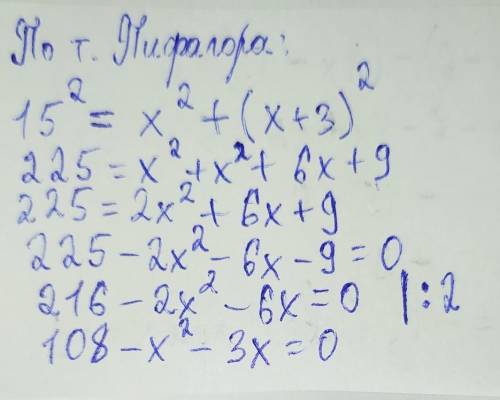 По т. Пифагора:
15² = x² + (x+3)²
225 = x² + x² + 6x + 9
225 = 2x² + 6x + 9
225 - 2x² - 6x - 9 = 0
216 - 2x² - 6x = 0 | : 2
108 - x² - 3x = 0